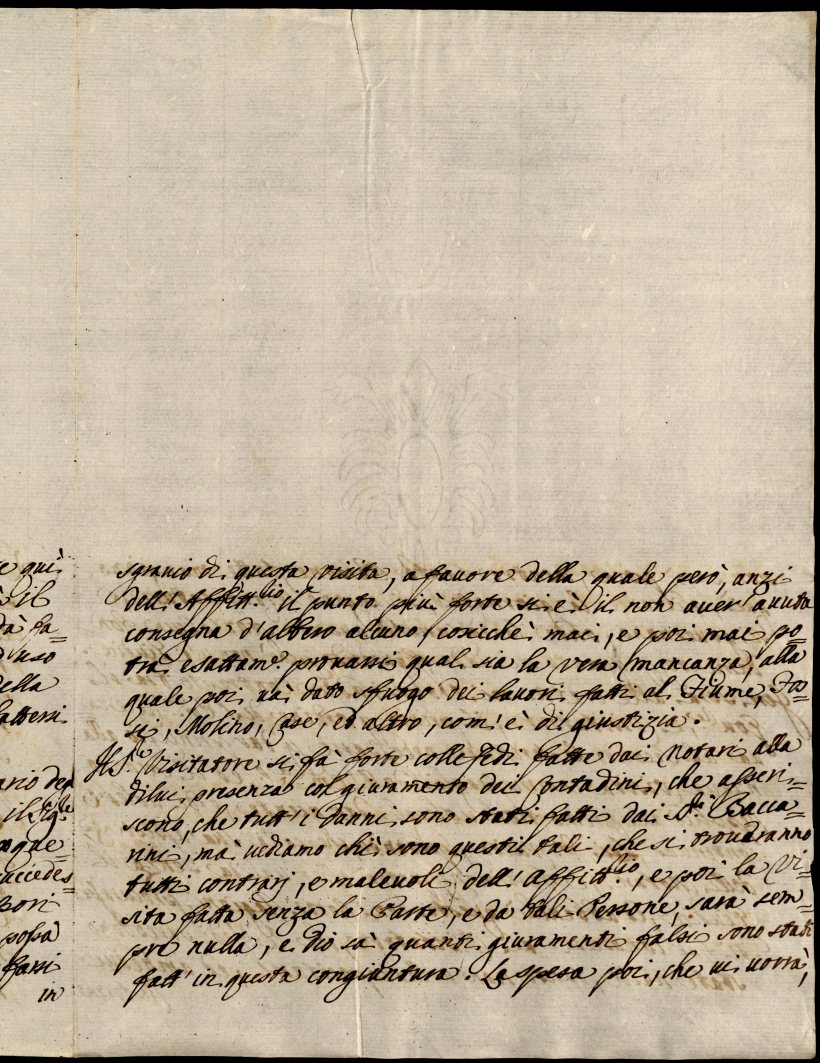 e quì
il
dà fa=
d'uso
della
battersi
ario del
il Sig.re
nque
accedes
Bori
possa
farsi
in
sgravio di questa visita, a favore della quale però, anzi
dell'Affitt.lio il punto più forte si è il non aver avuta
consegna d'albero alcuno, cosicchè mai, e poi mai po=
trà esattam.e provarsi qual sia la vera mancanza, alla
quale poi và dato sfuogo dei lavori fatti al Fiume, Fos=
si, Molino, Case, ed altro, com'è di giustizia.
Il S.e Visitatore si fà forte colle Fedi fatte dai Notari alla
dilui presenza col giuramento dei Contadini, che asseri=
scono, che tutt'i danni sono stati fatti dai S.ri Bacca=
rini, mà vediamo chi sono questi tali, che si trovaranno
tutti contrarj, e malevoli dell'Affitt.lio, e poi la Vi=
sita fatta senza la Parte, e da tali Persone, sarà sem=
pre nulla, e dio sà quanti giuramenti falsi sono stati
fatt'in questa congiuntura. La spesa poi, che vi vorrà,